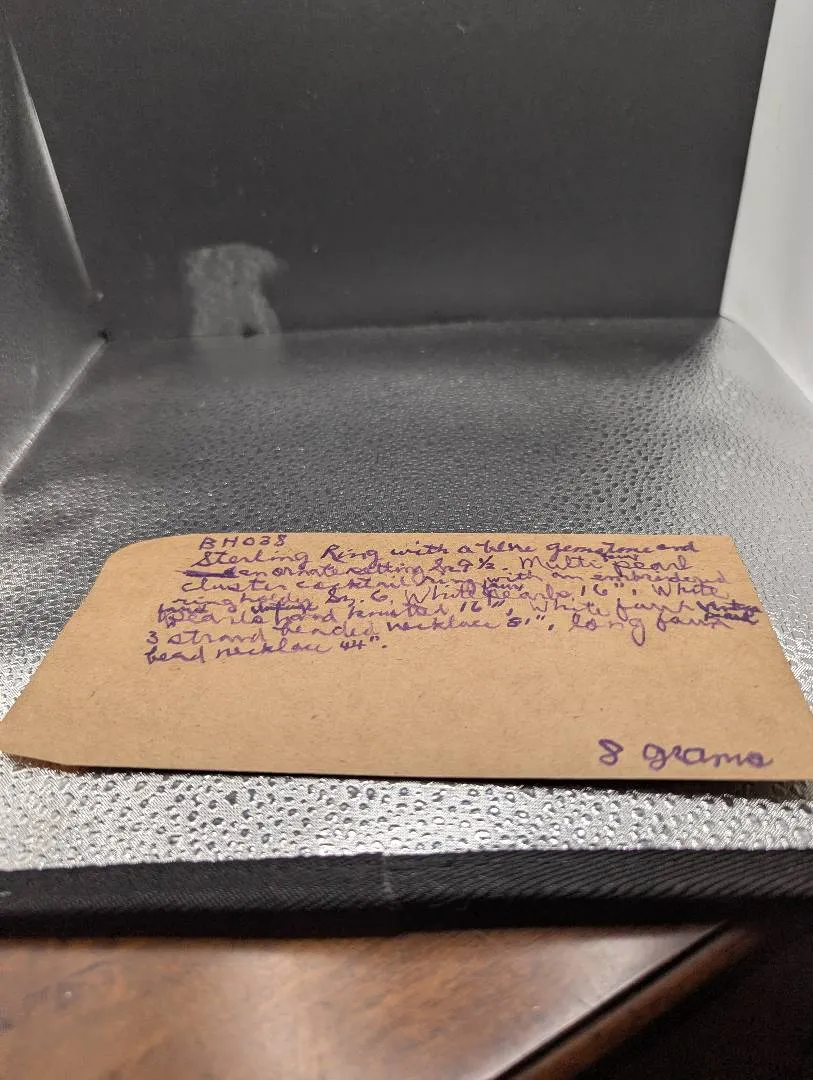 BH038
Sterling Ring with a blue gemstone and
an ornate setting Sz 9½. Multi faux pearl
cluster cocktail ring with an embroidered
ring holder Sz. 6, White faux pearls 16", White
faux pearls hand knotted 16", White faux
3 strand beaded necklace 51", long faux
bead necklace 44".
8 grams